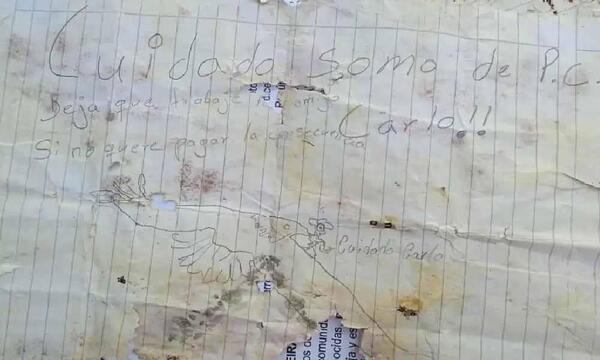 Cuidado somo de P.C.
Beja que trabaje mi amijo
Carlo!!
Si no quere pagar la consecuencia
Cuidado Carlo